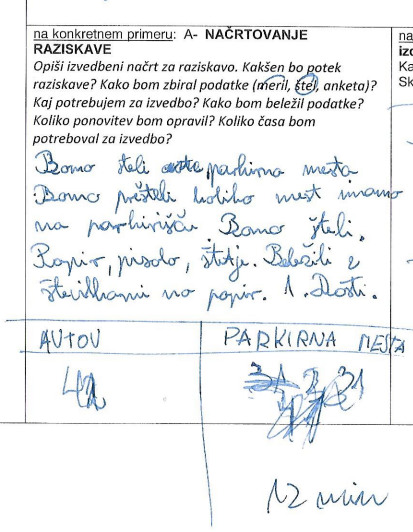 na konkretnem primeru: A- NAČRTOVANJE
RAZISKAVE
Opiši izvedbeni načrt za raziskavo. Kakšen bo potek
raziskave? Kako bom zbiral podatke (meril, štel, anketa)?
Kaj potrebujem za izvedbo? Kako bom beležil podatke?
Koliko ponovitev bom opravil? Koliko časa bom
potreboval za izvedbo?
na
izv
Ka
Sk
Bomo šteli parkirna mesta
Bomo prešteli koliko mest imamo
na parkirišču. Bomo šteli.
Papir, pisalo, štetje. Beležili z
številkami na papir. 1. Dosti.
AUTOV PARKIRNA MESTA
31
12 min